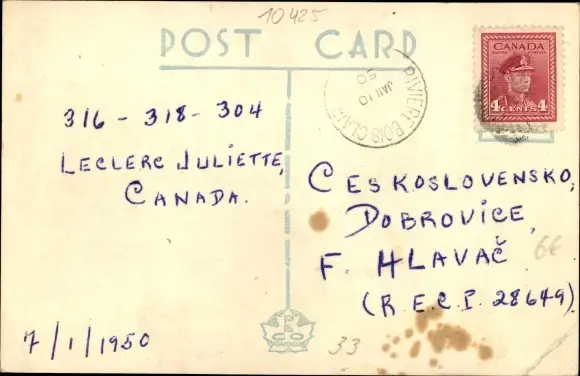 10425
POST CARD
CANADA
4 CENTS 4
RIVIERE BOIS CLAIR
JAN 10
50
316 - 318 - 304
LECLERC JULIETTE,
CANADA.
7/1/1950
CESKOSLOVENSKO,
DOBROVICE
F. HLAVAČ
(R.E.C.P. 28649).
6€
33
PECO